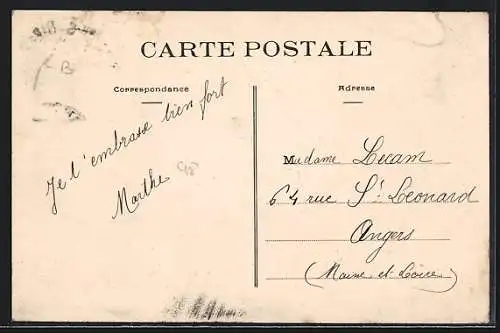 CARTE POSTALE
Correspondance
Je t'embrasse bien fort
Marthe
Adresse
Madame Lecam
64 rue St Leonard
Angers
(Maine et Loire)